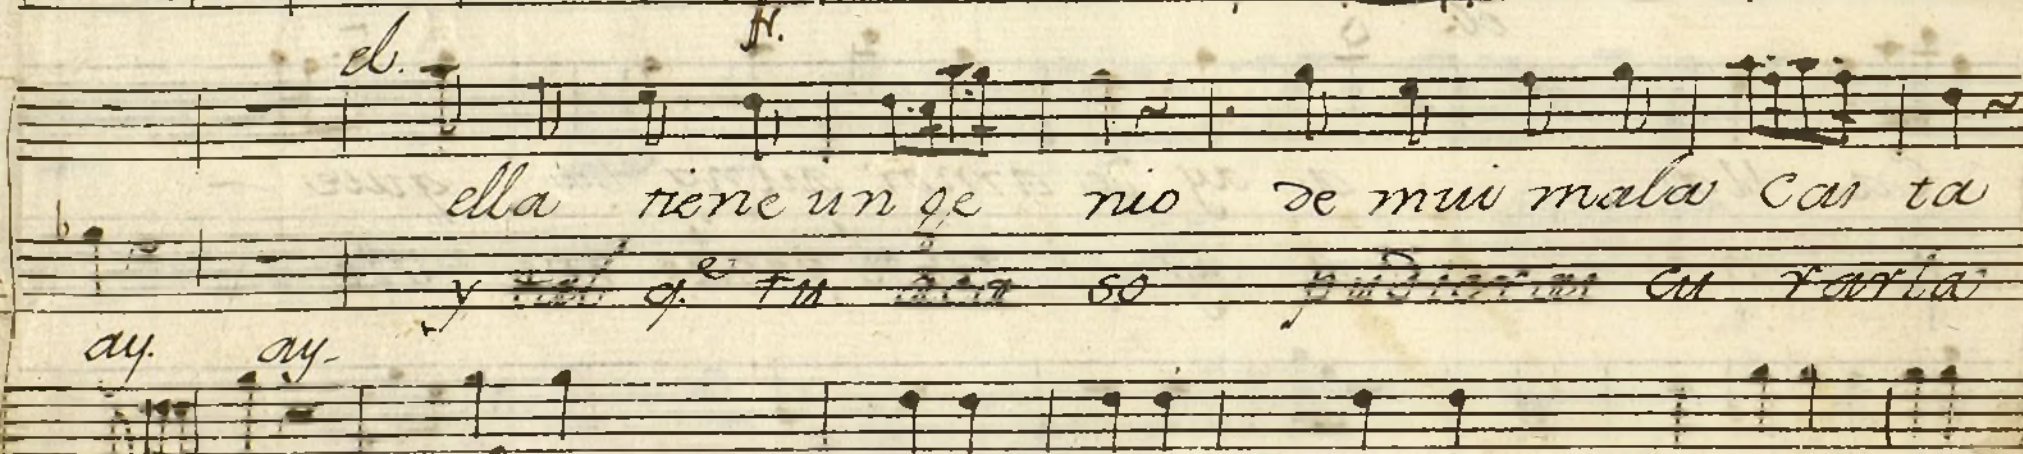 el. tr.
ella tiene un ge nio de mui mala cas ta
y q.e tu so pudieras cu rarla
ay. ay-